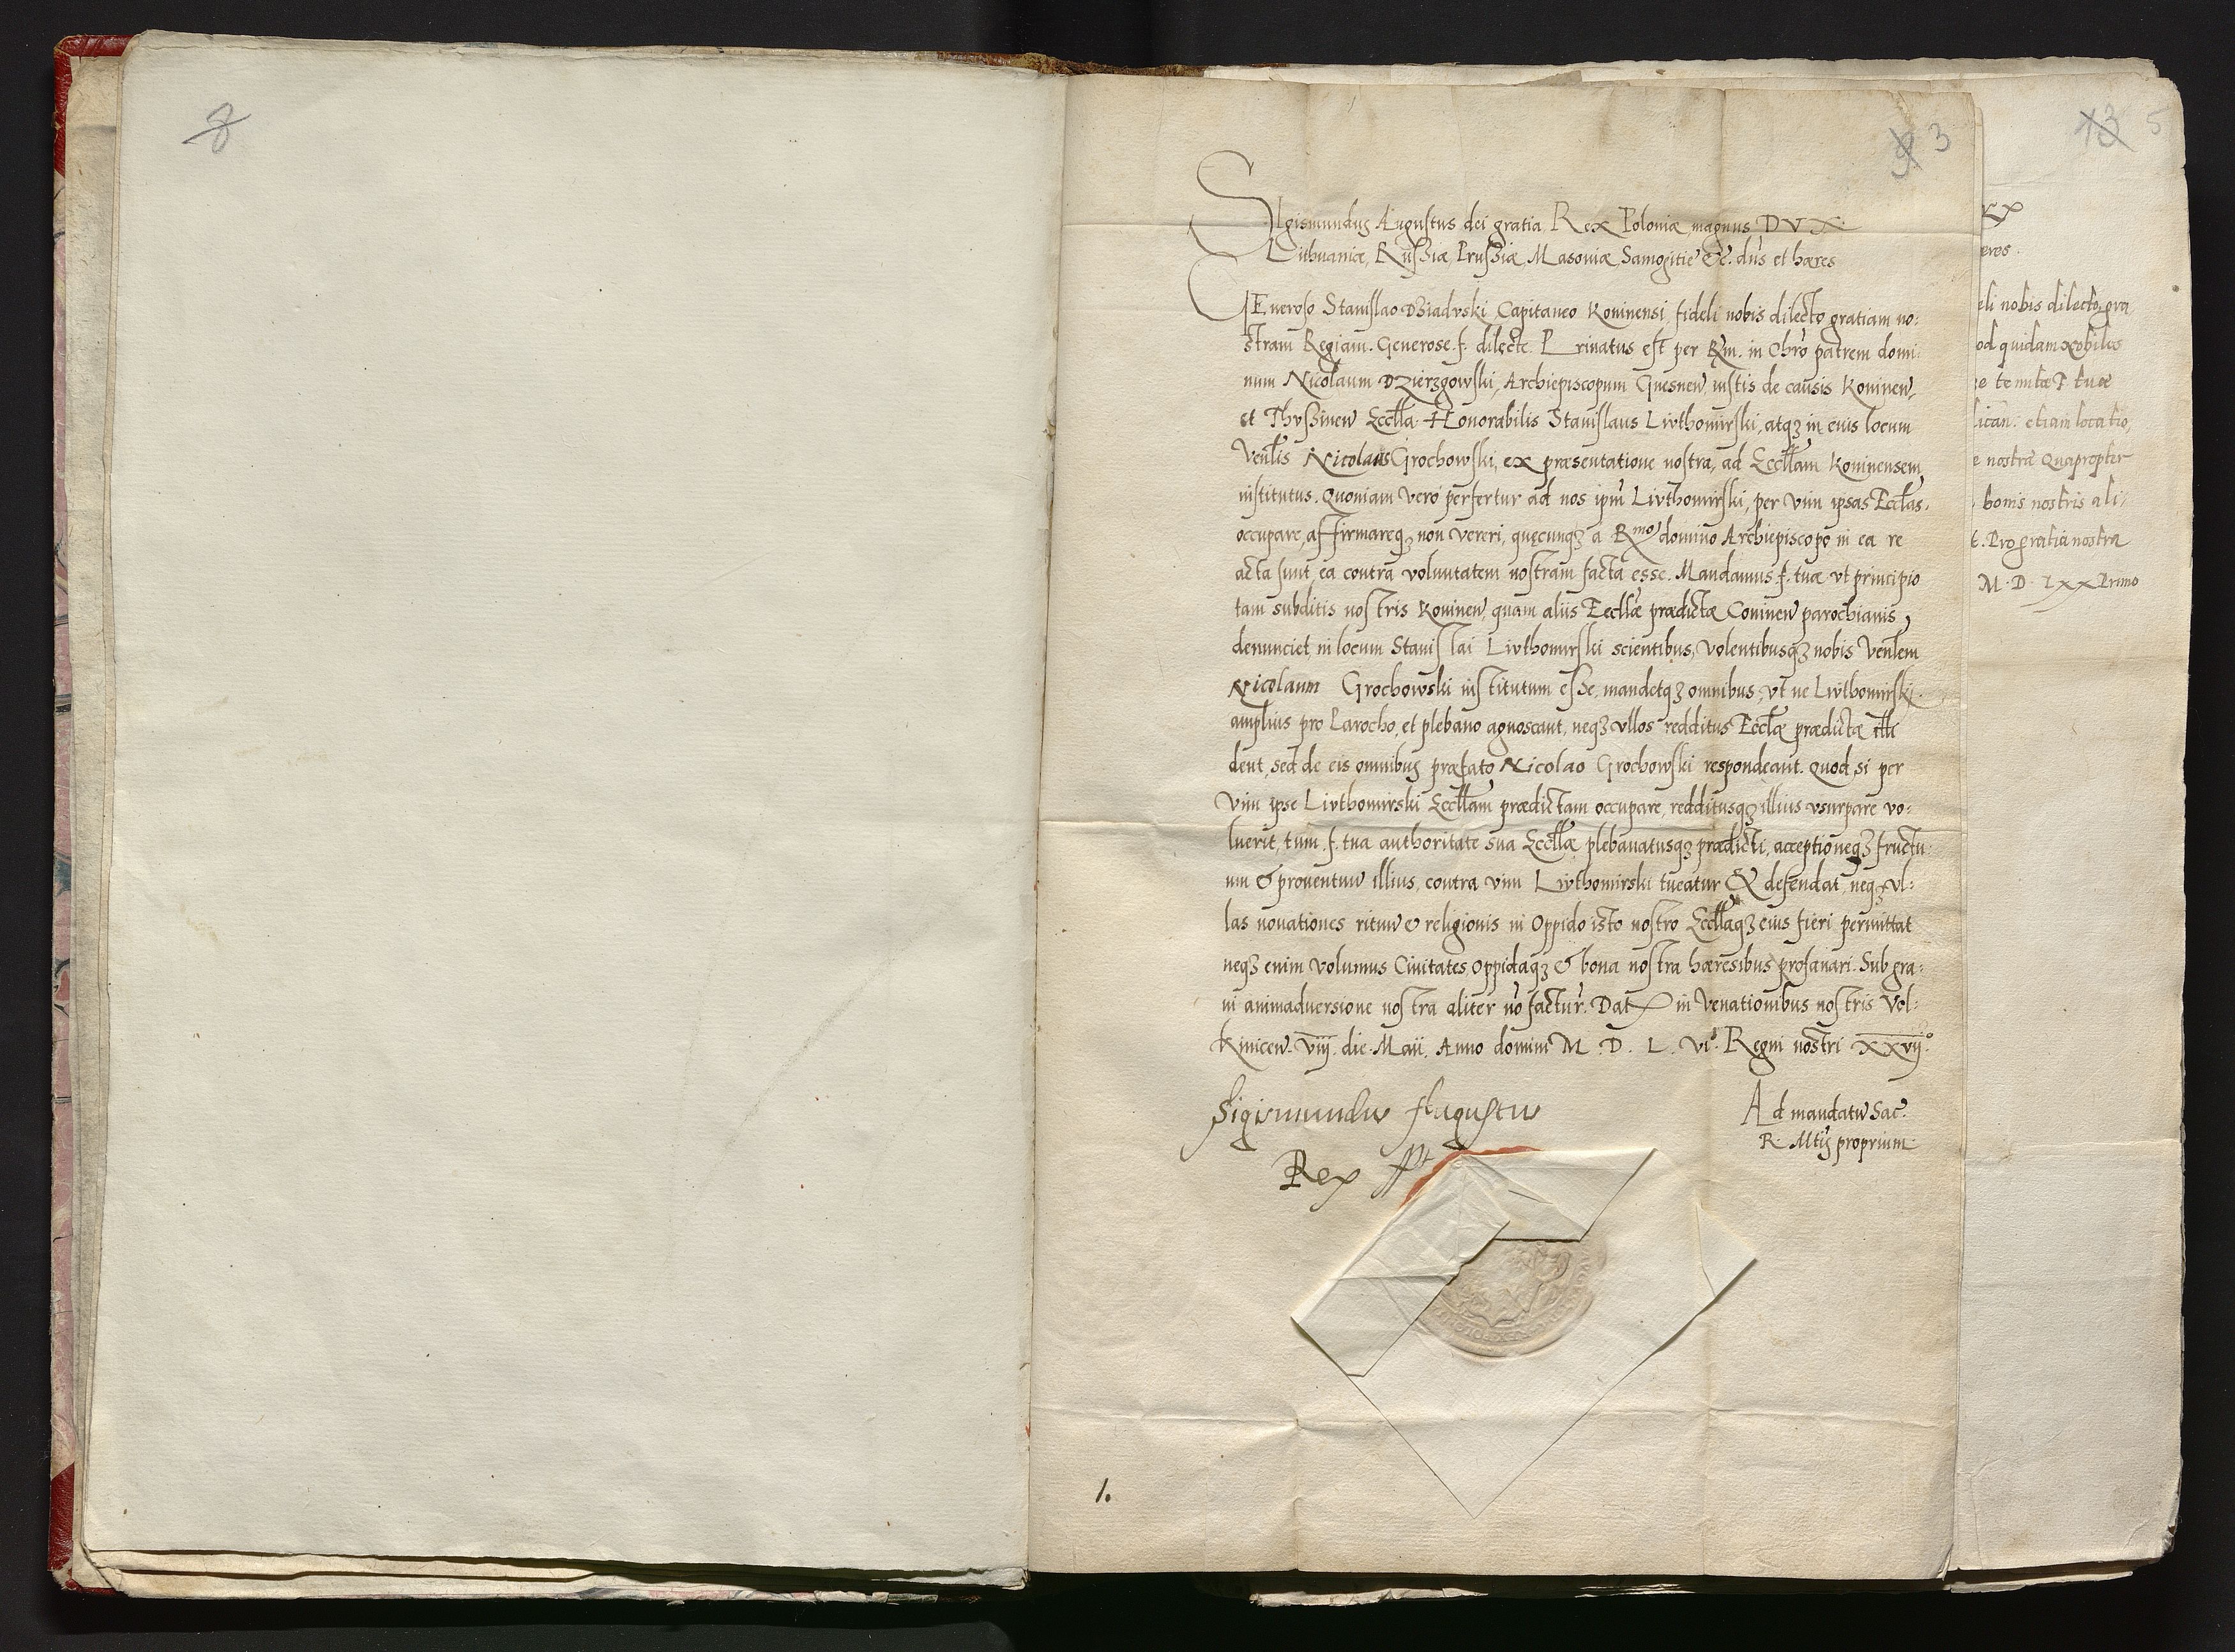 8
3
SIgismundus Augustus dei gratia Rex Poloniæ magnus DVX
Lithuaniæ, Russiæ, Prussiæ, Masoviæ, Samogitie &c. dns et hæres
GEneroso Stanislao Dziaduski Capitaneo Koninensi, fideli nobis dilecto gratiam no:
stram Regiam. Generose. f. dilecte. Prinatus est per Rm. in Chro patrem domi:
num Nicolaum Dzierzgowski, Archiepiscopum Gnesnen, iustis de causis Koninen,
et Thussinen Eccllia. Honorabilis Stanislaus Livthomirski, atqz in eius locum
Venlis Nicolaus Grochowski, ex præsentatione nostra, ad Ecclam Koninensem
institutus. Quoniam vero perfertur ad nos ipm Livthomirski, per vim ipsas Ecclas.
occupare, affirmareqz non vereri, quęcunqz a Rmo domino Archiepiscopo in ea re
acta sunt, ea contra voluntatem nostram facta esse. Mandamus f. tuæ vt principio
tam subditis nostris Koninen, quam aliis Ecclliæ prædictæ Coninen parochianis,
denunciet, in locum Stanislai Livthomirski scientibus, volentibusqz nobis Venlem
Nicolaum Grochowski institutum esse, mandetqz omnibus, vt ne Livthomirski.
amplius pro Parocho, et plebano agnoscant, neqz vllos redditus Ecclæ prædictæ illi
dent, sed de eis omnibus præfato Nicolao Grochowski respondeant. Quod, si per
vim ipse Livthomirski Ecclam prædictam occupare, redditusqz illius vsurpare vo:
luerit, tum. f. tua authoritate sua Ecclliæ plebanatusqz prædicti, acceptioneqz fructu:
um & proventuu illius, contra vim Livthomirski tueatur & defendat, neqz vl:
las novationes rituu & religionis in Oppido isto nostro Ecclliaqz eius fieri permittat
neqz enim volumus Civitates, Oppidaqz & bona nostra hæresibus profanari. Sub gra:
vi animadversione nostra aliter no factur. Dat in Venationibus nostris Vol:
kinicen. viij. die. Maii. Anno domini M. D. L. vi°. Regni nostri xxvij°.
Sigismundus Augustus
Rex sst
Ad mandatu Sac.
R. Mtis proprium.
1.
13 5
eres.
eli nobis dilecto, gra
od quidam Nobiles
e tenutæ tuæ
lican: etiam locatio,
e nostra Quapropter
bonis nostris ali:
t. Pro gratia nostra
M. D. LXX Primo